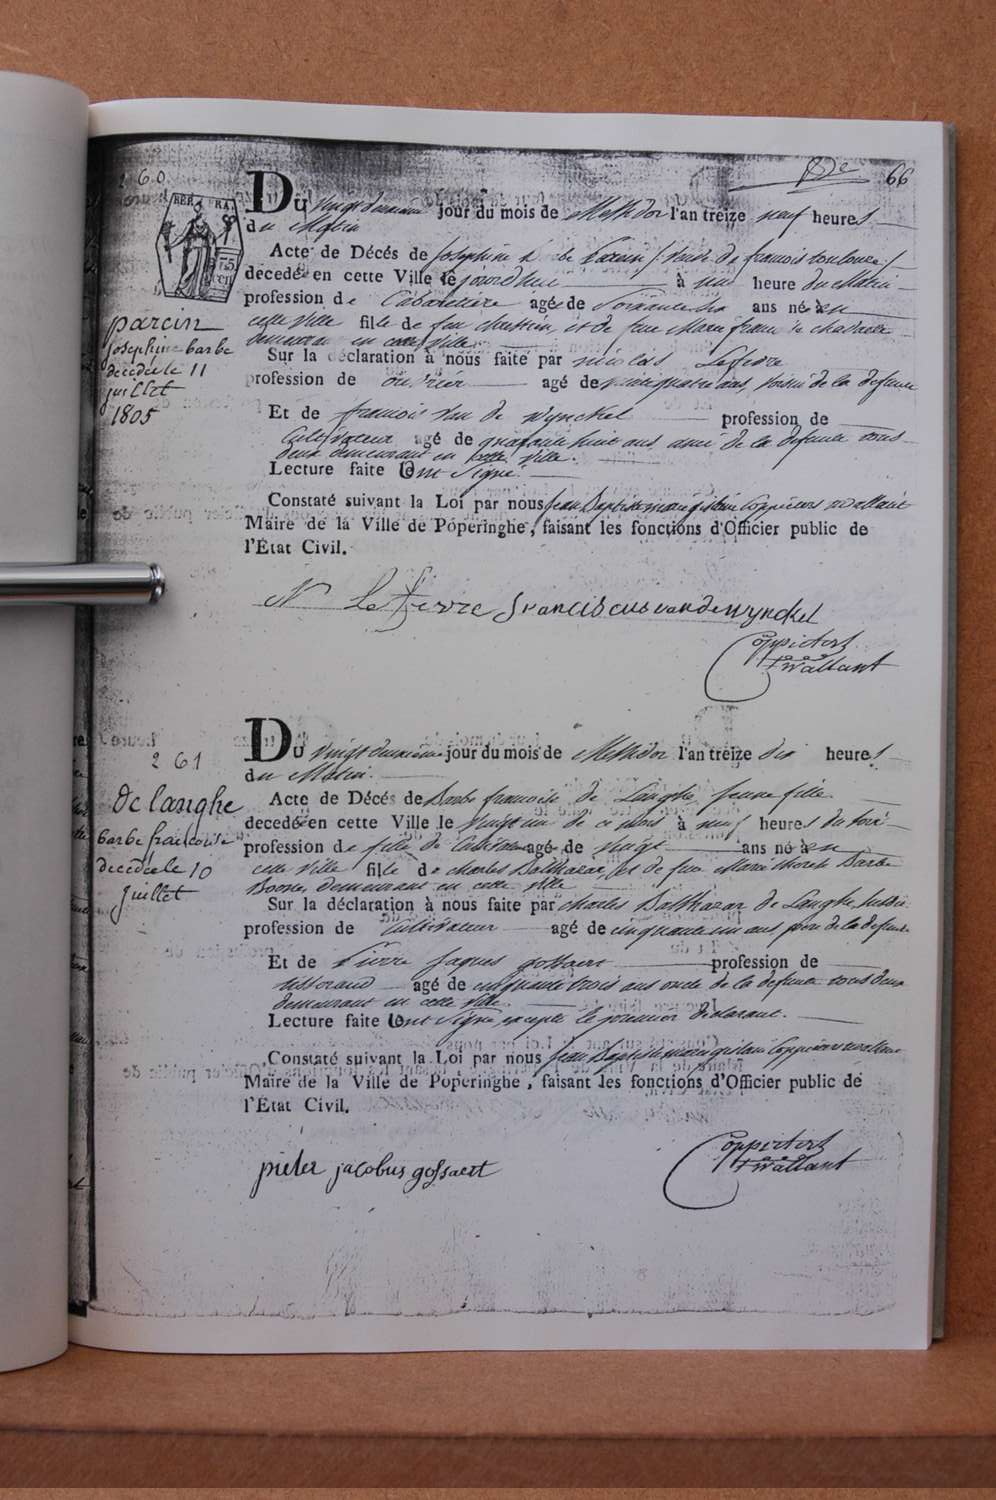 66
260
DU vingt deuxieme jour du mois de Messidor l'an treize neuf heures
du Matin
Acte de Décés de Josephine Barbe Parcin / veuve de francois toulouse /
decedée en cette Ville le jourdhui à une heure du Matin
profession de Cabaretiere agé de Soixante six ans né à en
cette Ville fille de feu Chretien et de feue Marie
demeurant en cette ville
parcin
josephine barbe
decedée le 11
juillet
1805
Sur la déclaration à nous faite par nicolas Lefevre
profession de ouvrier agé de vingt quatre ans, voisin de la defunte
Et de francois Van de Wynckel profession de
Cultivateur agé de quarante huit ans ami de la defunte tous
deux demeurant en cette ville.
Lecture faite Ont Signé.
Constaté suivant la Loi par nous Jean Baptiste marie ghislain Coppieters wallant
Maire de la Ville de Poperinghe, faisant les fonctions d'Officier public de
l'État Civil.
N Lefevre franciscus vandewynckel
Coppieters
wallant
261
DU vingt deuxieme jour du mois de Messidor l'an treize dix heures
du Matin.
Acte de Décés de Barbe francoise de Langhe, jeune fille.
decedée en cette Ville le vingt un de ce mois à neuf heures du soir
profession de fille de Cultivateur agé de vingt ans né à en
cette Ville fille de charles Balthazar, et de feue Marie Barbe
Boone, demeurant en cette ville
De langhe
barbe francoise
decedée le 10
juillet
Sur la déclaration à nous faite par charles Balthazar de Langhe
profession de Cultivateur agé de cinquante un ans pere de la defunte
Et de Pierre Jaques gossaert profession de
tisserand agé de cinquante trois ans oncle de la defunte tous deux
demeurant en cette ville.
Lecture faite Ont Signé, excepté le premier declarant.
Constaté suivant la Loi par nous Jean Baptiste marie ghislain Coppieters wallant
Maire de la Ville de Poperinghe, faisant les fonctions d'Officier public de
l'État Civil.
pieter jacobus gossaert
Coppieters
wallant